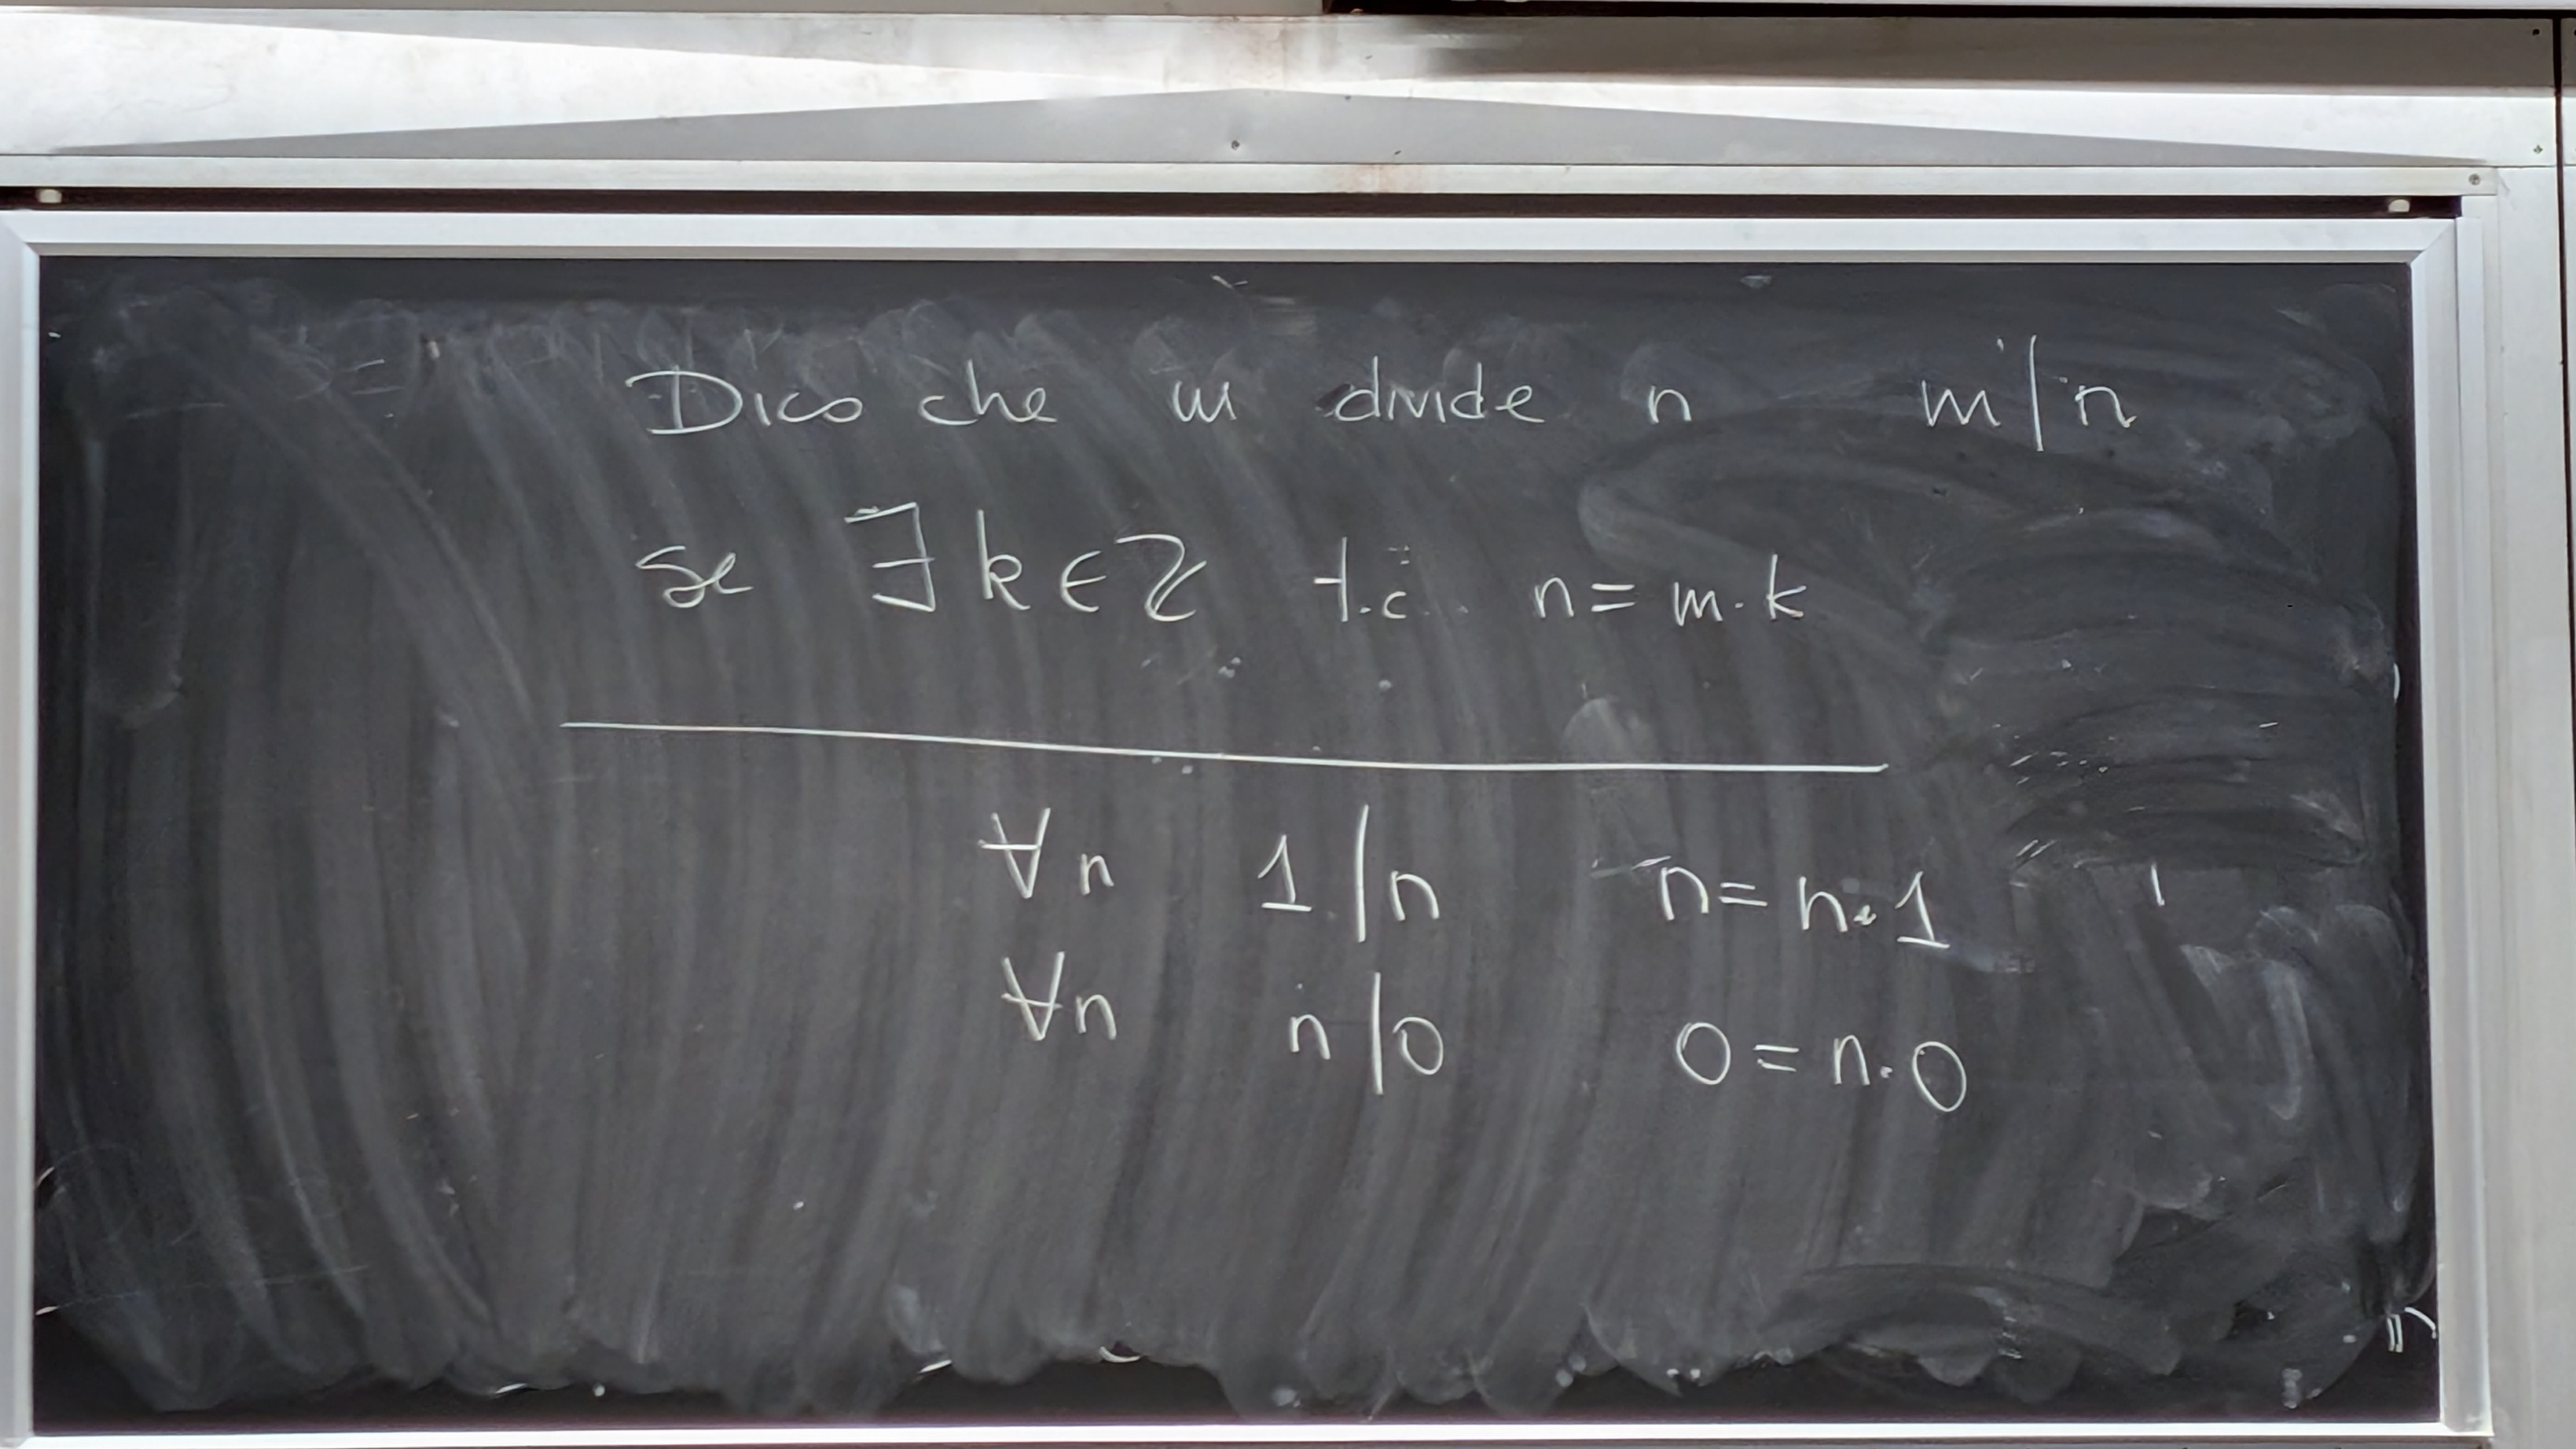 Dico che m divide n m|n
se ∃ k ∈ ℤ t.c. n = m · k
∀n 1|n n = n · 1
∀n n|0 0 = n · 0